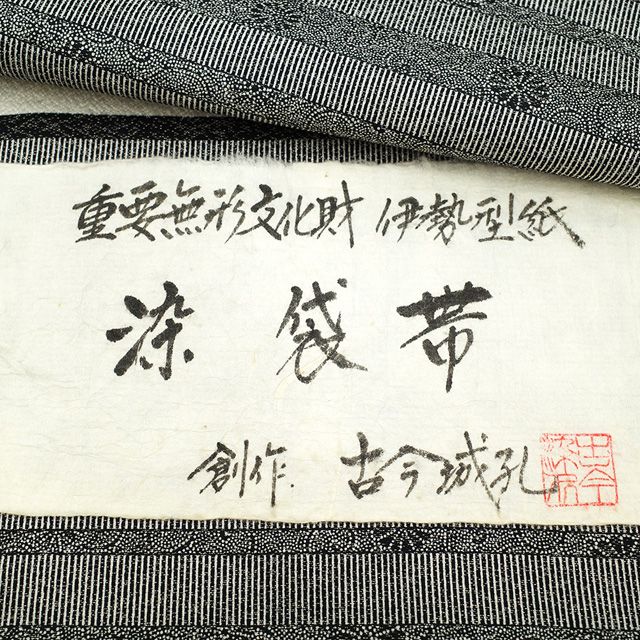 重要無形文化財 伊勢型紙
染袋帯
創作 古今城孔